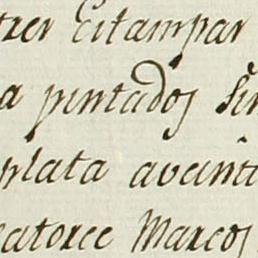 Estampar
a pintados sin
plata aveinti
catorce Marcos